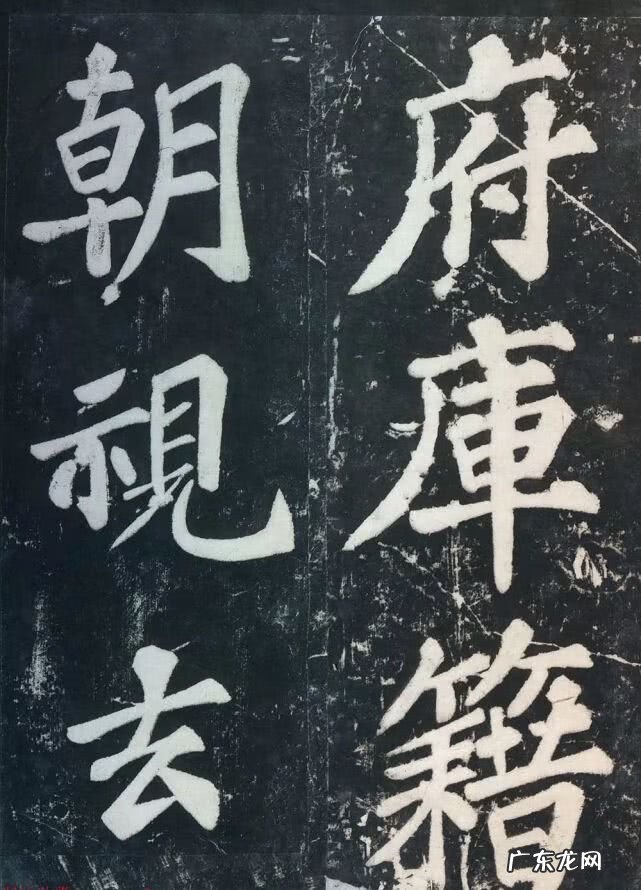 府庫籍
朝視去
广东龙网